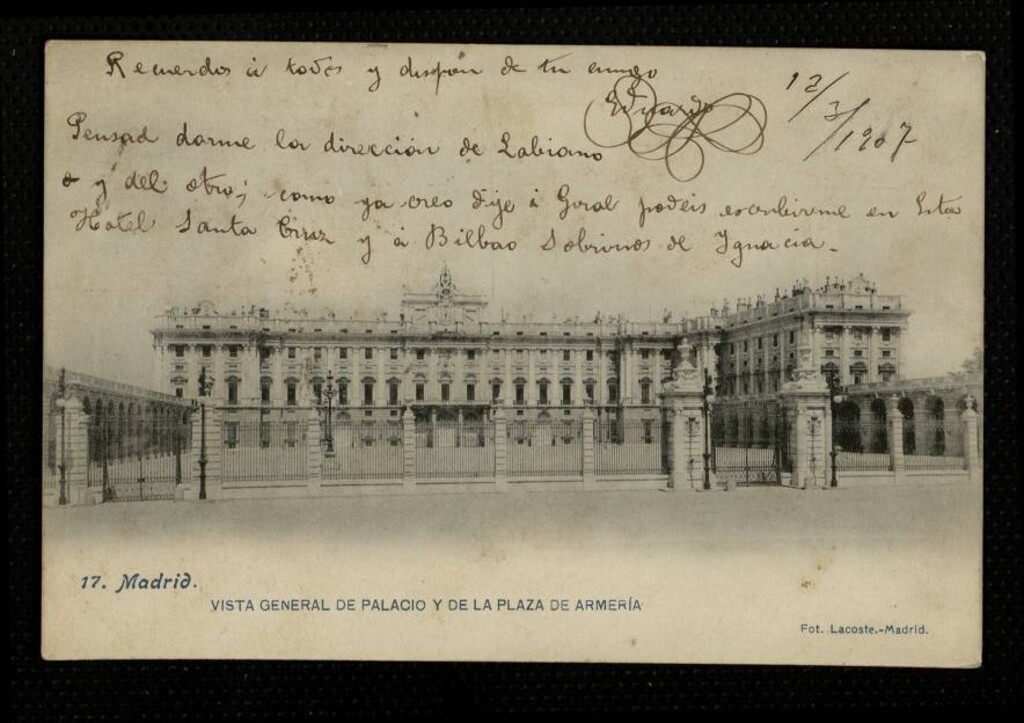 Recuerdos á todos y dispon de tu amigo
Eduardo
12/3/1907
Pensad darme la dirección de Labiano
y del otro; como ya creo dije á Giral podeis escribirme en Esta
Hotel Santa Cruz y á Bilbao Sobrinos de Ignacia.-
17. Madrid.
VISTA GENERAL DE PALACIO Y DE LA PLAZA DE ARMERÍA
Fot. Lacoste.-Madrid.